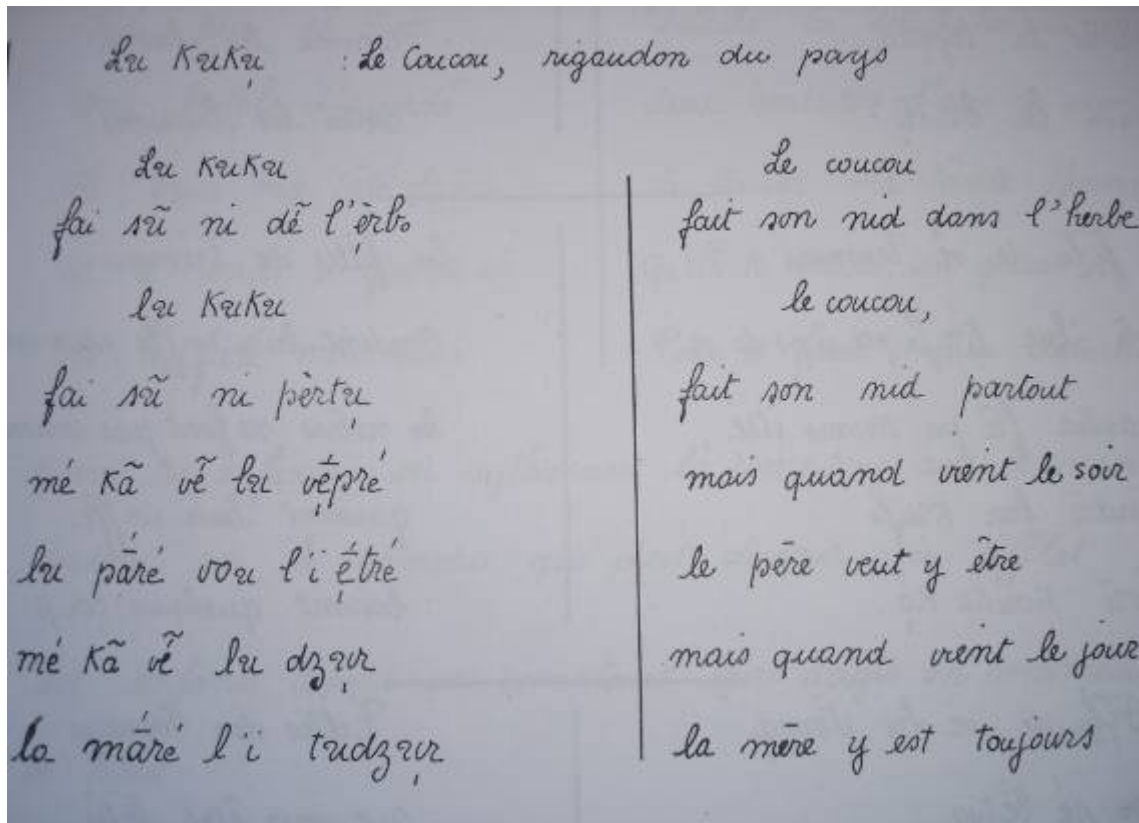 Lu Kuku̩ : Le Coucou, rigaudon du pays
Lu Kuku
fai sũ ni dẽ l'è̩rbo
lu Kuku
fai sũ ni pèrtu̩
mé Kã vẽ lu vē̩pré
lu pāré vou l'ï ḗ̩tré
mé Kã vẽ lu dzu̩r
la mā́ré l'ï tudzu̩r
Le coucou
fait son nid dans l'herbe
le coucou,
fait son nid partout
mais quand vient le soir
le père veut y être
mais quand vient le jour
la mère y est toujours